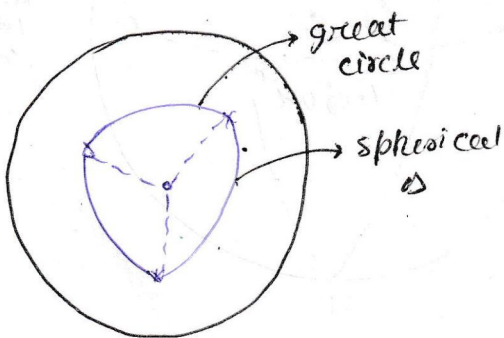 great
circle
spherical
Δ